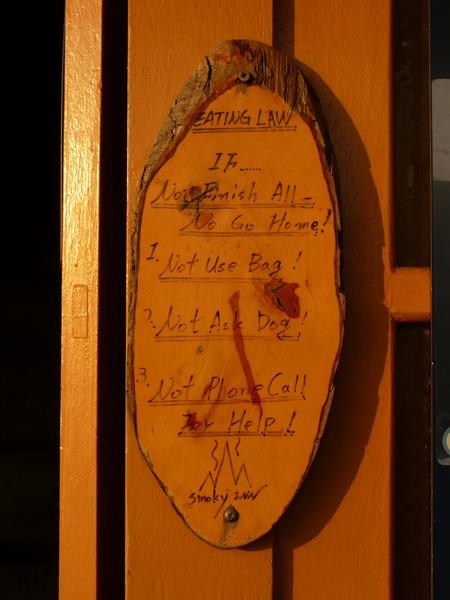 EATING LAW
IF......
Not Finish All -
No Go Home!
1. Not Use Bag!
2. Not Ask Dog!
3. Not Phone Call
For Help!
Smoky INN